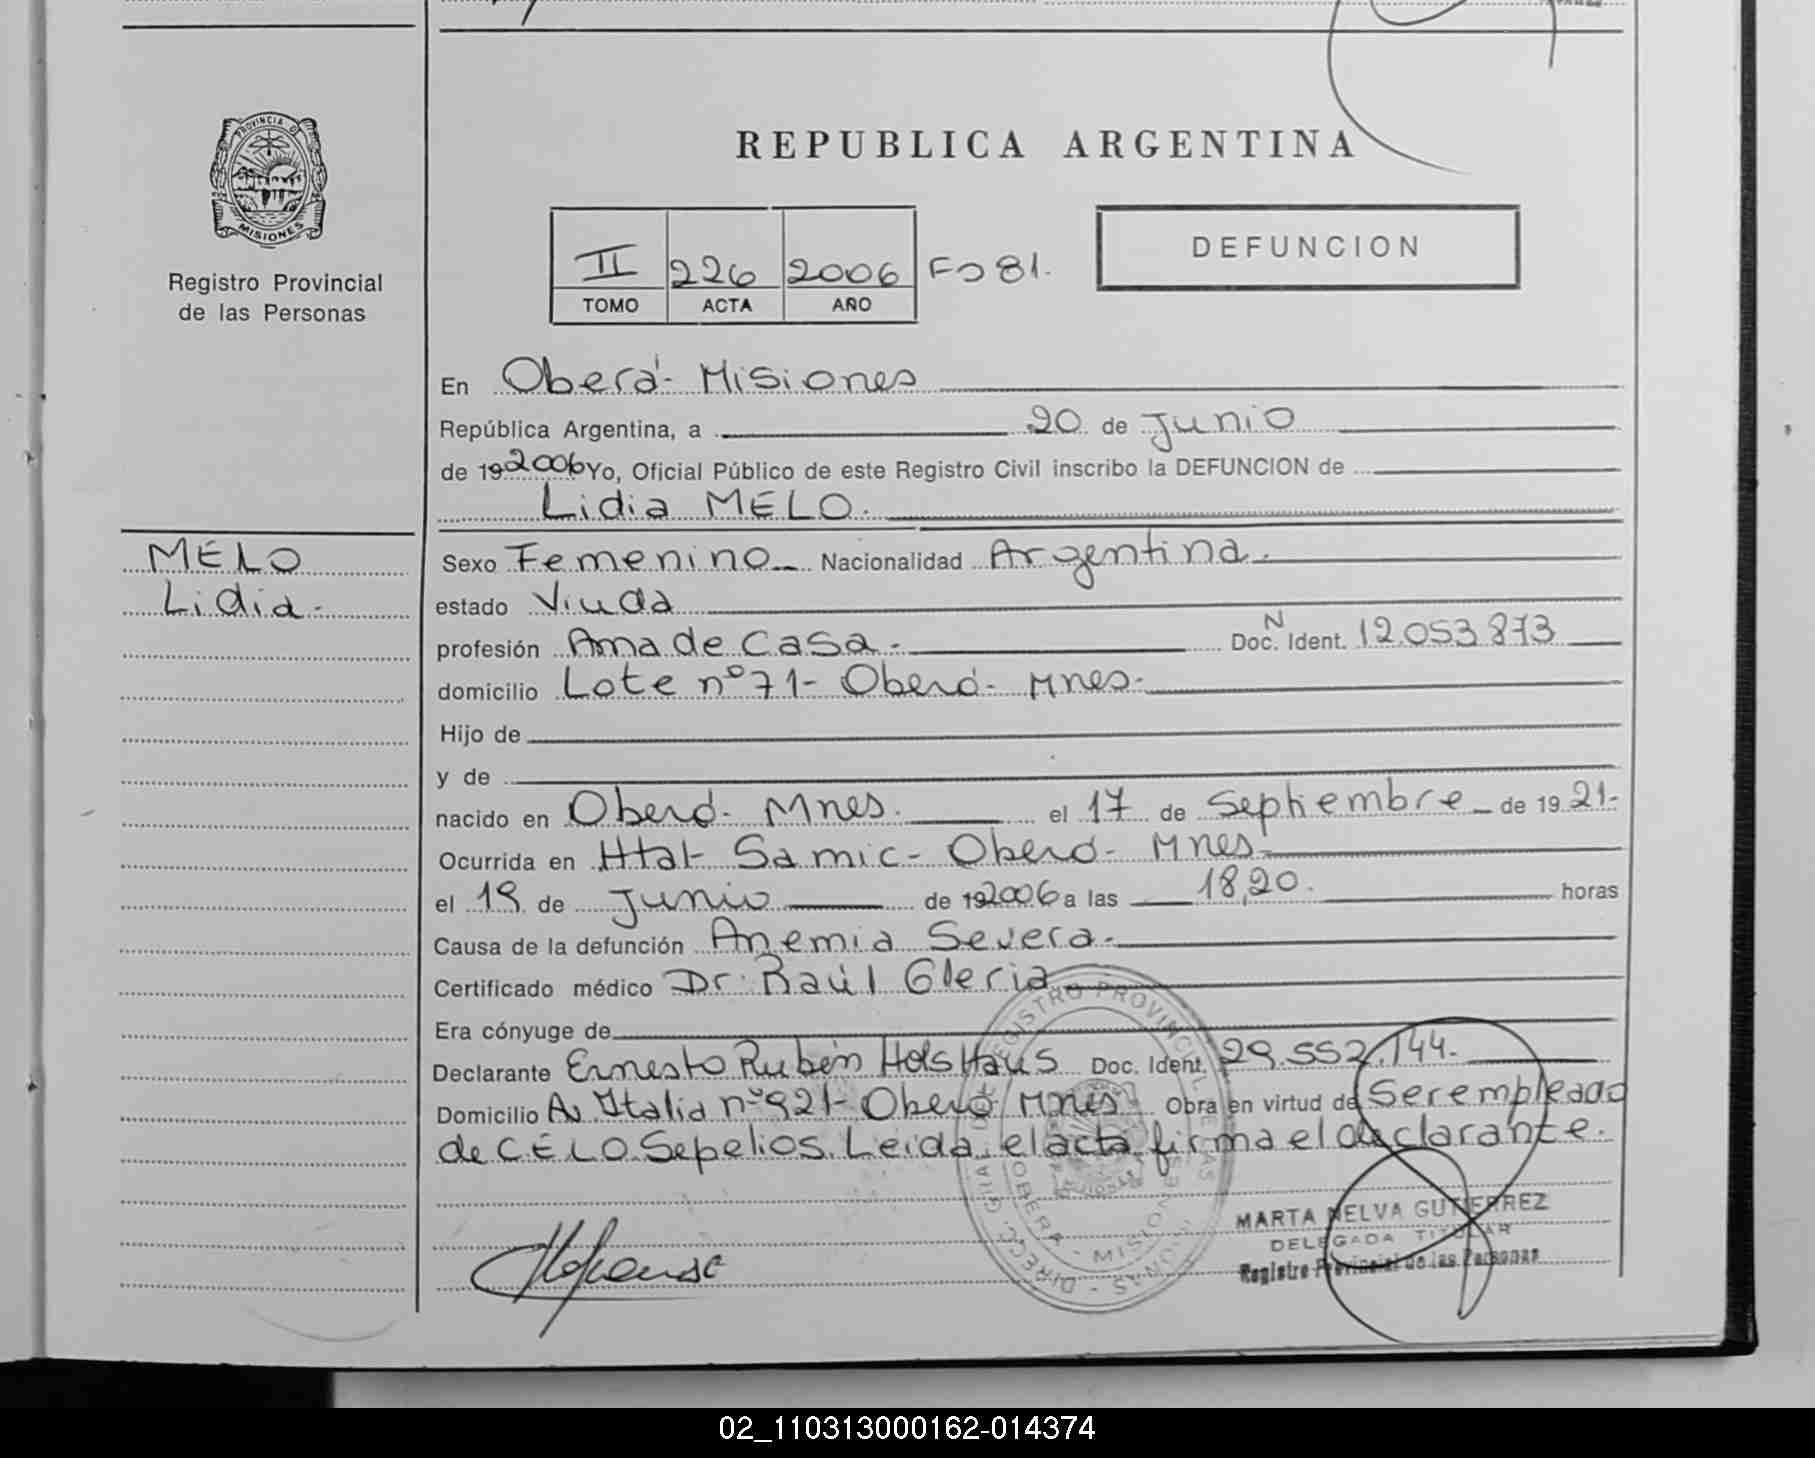 PROVINCIA D
MISIONES
Registro Provincial
de las Personas
MELO
Lidia.
REPUBLICA ARGENTINA
II 226 2006 Fo 81.
TOMO ACTA AÑO
DEFUNCION
En Oberá - Misiones
República Argentina, a 20 de Junio
de 19 2006 Yo, Oficial Público de este Registro Civil inscribo la DEFUNCION de
Lidia MELO.
Sexo Femenino Nacionalidad Argentina.
estado Viuda
profesión Ama de casa. N Doc. Ident. 12.053.873
domicilio Lote nº 71- Oberá- Mnes.
Hijo de
y de
nacido en Oberá- Mnes. el 17 de Septiembre de 19 21-
Ocurrida en Htal- Samic- Oberá- Mnes
el 19 de Junio de 19 2006 a las 18,20. horas
Causa de la defunción Anemia Severa.
Certificado médico Dr. Raúl Gleria
Era cónyuge de
Declarante Ernesto Rubén Holshaus Doc. Ident. 29.552.144.
Domicilio Av Italia nº 921- Oberá Mnes Obra en virtud de Ser empleado
de CELO Sepelios. Leida el acta firma el declarante.
MARTA NELVA GUTIERREZ
DELEGADA TITULAR
Registro Provincial de las Personas
DIRECC. GRIA DE REGISTRO PROVINCIAL DE LAS PERSONAS
OBERA - MISIONES
02_110313000162-014374